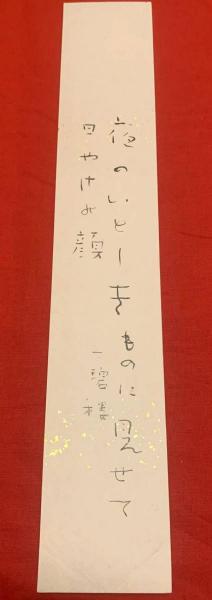 夜のいとしきものに見せて
日やけの顔
一碧楼